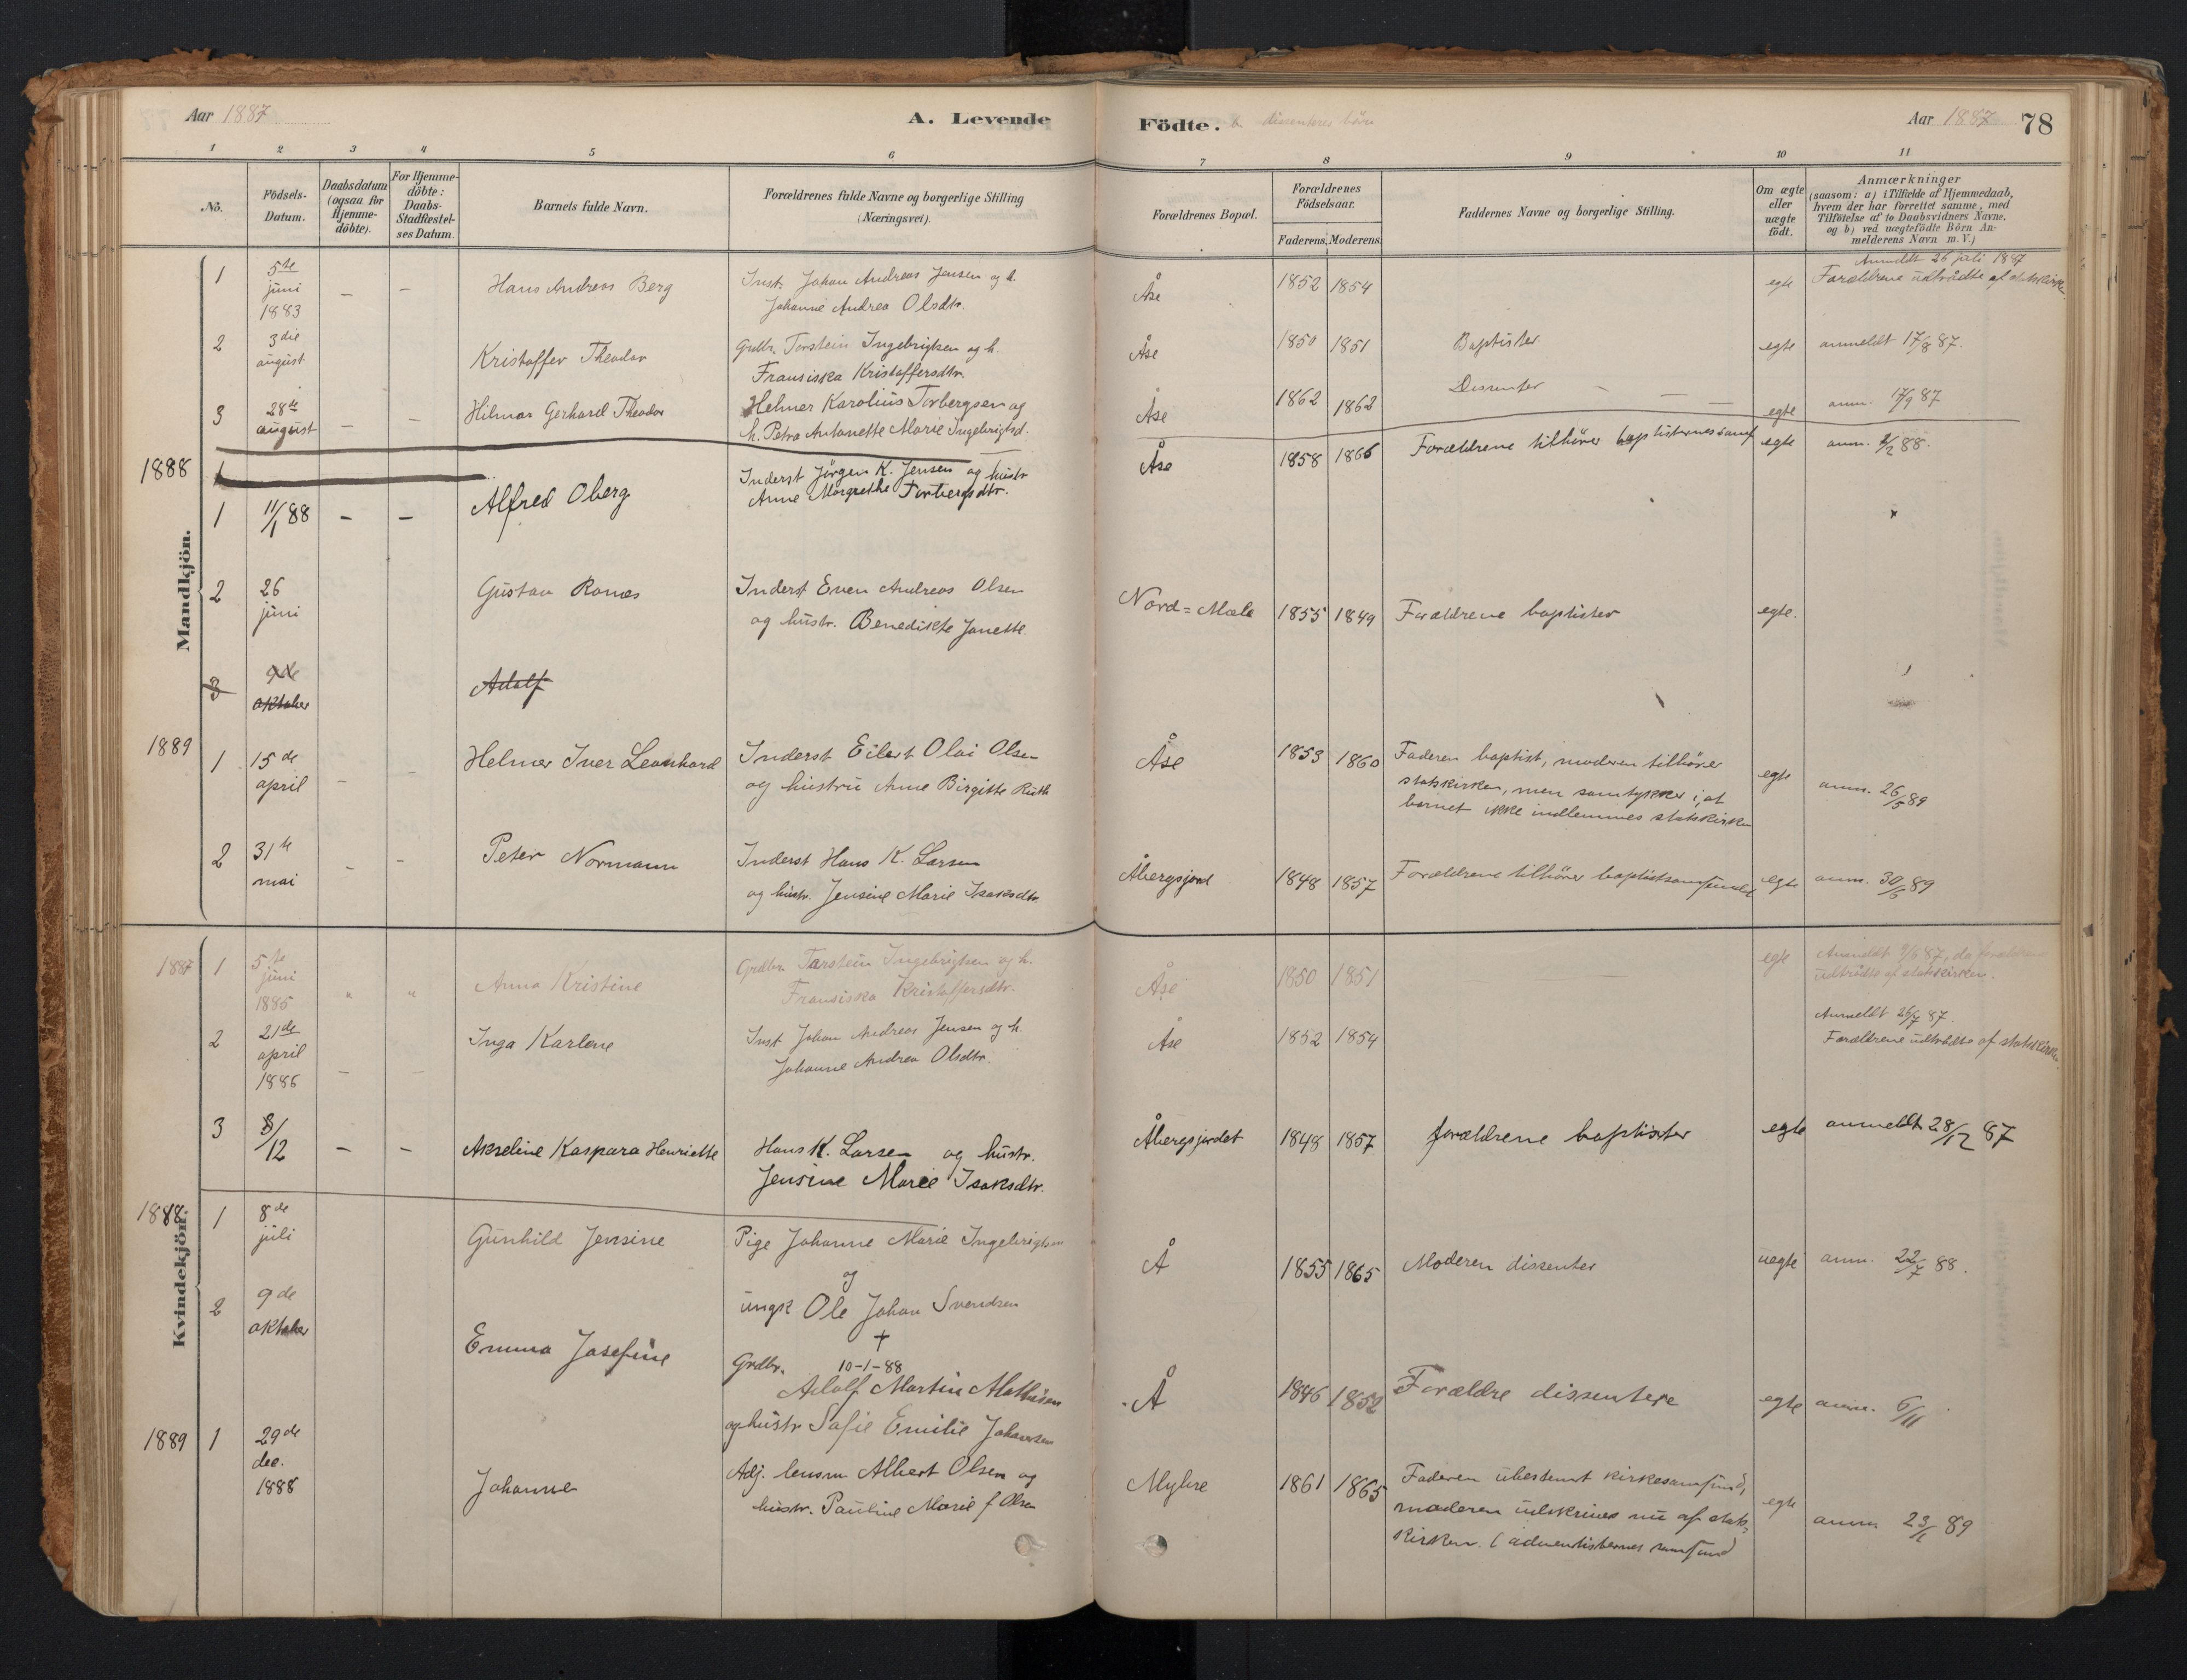 Aar 1887
A. Levende
Födte. dissenteres börn
Aar 1887
78
1 2 3 4 5 6 7 8 9 10 11
No.
Födsels-
Datum.
Daabsdatum
(ogsaa for
Hjemme-
döbte).
For Hjemme-
döbte:
Daabs-
Stadfæstel-
ses Datum.
Barnets fulde Navn.
Forældrenes fulde Navne og borgerlige Stilling
(Næringsvei).
Forældrenes Bopæl.
Forældrenes
Födselsaar.
Faderens. Moderens.
Faddernes Navne og borgerlige Stilling.
Om ægte
eller
uægte
födt.
Anmærkninger
(saasom: a) i Tilfælde af Hjemmedaab,
hvem der har forrettet samme, med
Tilföielse af to Daabsvidners Navne.
og b) ved uægtefödte Börn An-
melderens Navn m. V.)
Mandkjön.
1 5te juni 1883 – – Hans Andreas Berg
Inst. Johan Andreas Jensen og h.
Johanne Andrea Olsdtr.
Åse 1852 1854 egte
Anmeldt 26 juli 1887
Forældrene udtrådte af statskirken
2 3die august Kristoffer Theodor
Grdbr. Torstein Ingebrigtsen og h.
Fransiska Kristoffersdtr.
Åse 1850 1851 Baptister egte anmeldt 17/8 87.
3 28de august – – Hilmar Gerhard Theodor
Helmer Karolius Torbergsen og
h. Petra Antonette Marie Ingebrigtsd.
Åse 1862 1862 Dissenter – – – egte anm. 17/9 87
1888 1
1 11/1 88 – – Alfred Oberg
Inderst Jörgen K. Jensen og hustr
Anne Margrethe Torbergsdtr.
Åse 1858 1866 Forældrene tilhörer baptisternes samf egte anm. 2/2 88.
2 26 juni Gustav Ronæs
Inderst Even Andreas Olsen
og hustr. Benedikte Janette
Nord=Mæla 1855 1849 Forældrene baptister egte.
3 9de oktober Adolf
1889 1 15de april – – Helmer Iver Leonhard
Inderst Eilert Olai Olsen
og hustru Anne Birgitte Ruth
Åse 1853 1860 Faderen baptist, moderen tilhörer
statskirken, men samtykker i, at
barnet ikke indlemmes statskirken
egte anm. 26/5 89
2 31te mai – – Peter Normann
Inderst Hans K. Larsen
og hustr. Jensine Marie Isaksdtr.
Åbergsjord 1848 1857 Forældrene tilhörer baptistsamfundet egte anm. 30/6 89
Kvindekjön.
1887 1 5te juni 1885 " " Anna Kristine
Grdbr. Torstein Ingebrigtsen og h.
Fransiska Kristoffersdtr.
Åse 1850 1851 – egte
Anmeldt 9/6 87, da forældrene
udtrådte af statskirken.
2 21de april 1886 – – Inga Karlene
Inst Johan Andreas Jensen og h.
Johanne Andrea Olsdtr.
Åse 1852 1854
Anmeldt 26/7 87.
Forældrene udtrådte af statskirken
3 8/12 – – Akseline Kaspara Henriette
Hans K. Larsen og hustr.
Jensine Marie Isaksdtr.
Åbergsjordet 1848 1857 forældrene baptister egte anmeldt 28/12 87
1888 1 8de juli Gunhild Jensine
Pige Johanne Marie Ingebrigtsen
og
ungk Ole Johan Svendsen
Å 1855 1865 Moderen dissenter uegte anm. 22/7 88.
2 9de oktober Emma Josefine
†
Grdbr. 10-1-88
Adolf Martin Mathisen
og hustr Sofie Emilie Johansen
Å 1846 1852 Forældre dissentere egte anm. 6/11
1889 1 29de dec. 1888 Johanne
Adj. lensm Albert Olsen og
hustr. Pauline Marie f Olsen
Myhre 1861 1865 Faderen ubestemt kirkesamfund,
moderen udskrives nu af stats-
kirken. (adventisternes samfund
egte anm. 23/1 89